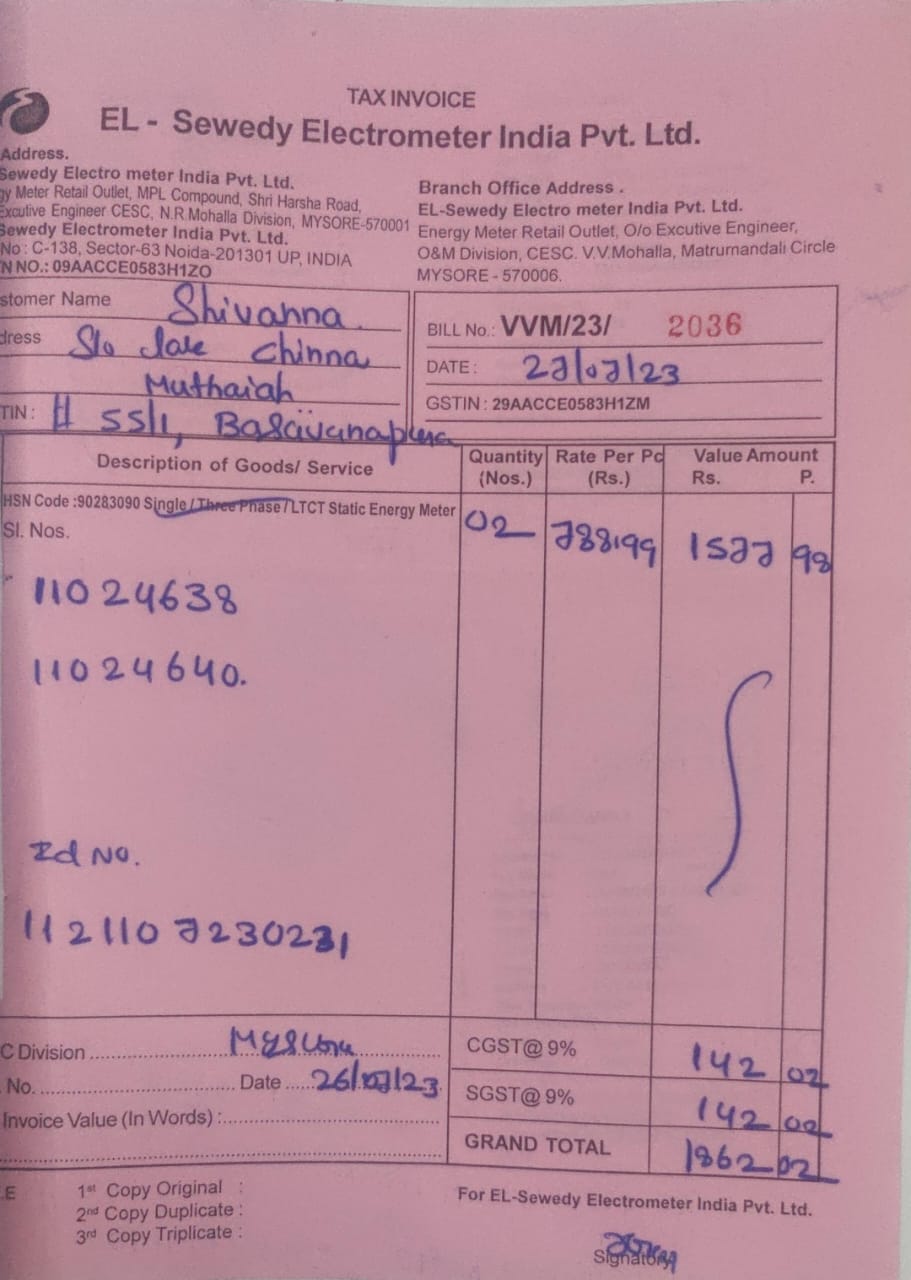 TAX INVOICE
EL - Sewedy Electrometer India Pvt. Ltd.
Address.
Sewedy Electro meter India Pvt. Ltd.
gy Meter Retail Outlet, MPL Compound, Shri Harsha Road,
Excutive Engineer CESC, N.R.Mohalla Division, MYSORE-570001
Sewedy Electrometer India Pvt. Ltd.
No : C-138, Sector-63 Noida-201301 UP, INDIA
N NO.: 09AACCE0583H1ZO
Branch Office Address .
EL-Sewedy Electro meter India Pvt. Ltd.
Energy Meter Retail Outlet, O/o Excutive Engineer,
O&M Division, CESC. V.V.Mohalla, Matrumandali Circle
MYSORE - 570006.
stomer Name Shivanna
dress S/o late Chinna
Muthaiah
TIN : # 55/1, Basavanapura
BILL No.: VVM/23/ 2036
DATE : 27/07/23
GSTIN : 29AACCE0583H1ZM
Description of Goods/ Service Quantity (Nos.) Rate Per Pc (Rs.) Value Amount Rs. P.
HSN Code :90283090 Single / Three Phase / LTCT Static Energy Meter 02 788.99 1577 98
Sl. Nos.
11024638
11024640.
Id No.
1121107230231
C Division Mysuru
No. Date 26/07/23
Invoice Value (In Words) :
CGST@ 9% 142 02
SGST@ 9% 142 02
GRAND TOTAL 1862 02
E 1st Copy Original :
2nd Copy Duplicate :
3rd Copy Triplicate :
For EL-Sewedy Electrometer India Pvt. Ltd.
Signatory